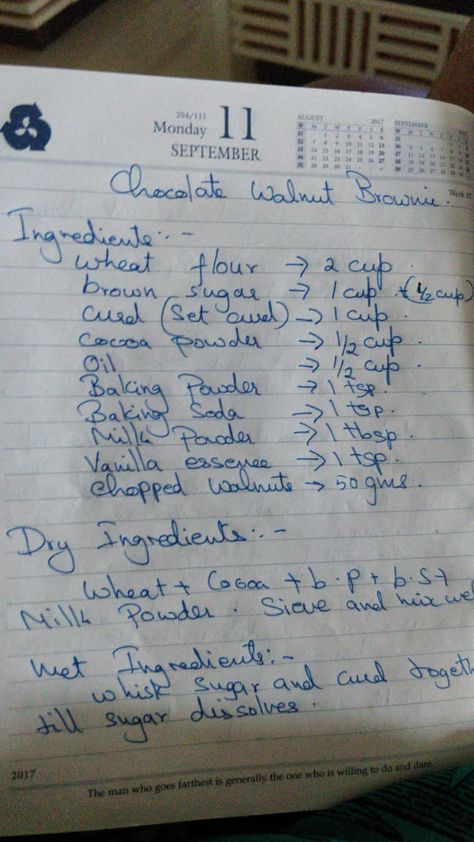 254/111
Monday 11
SEPTEMBER
AUGUST 2017
SEPTEMBER
Week
Chocolate Walnut Brownie.
Ingredients:-
wheat flour → 2 cup.
brown sugar → 1 cup + (1/2 cup)
curd (set curd) → 1 cup.
cocoa powder → 1/2 cup.
Oil → 1/2 cup.
Baking Powder → 1 tsp.
Baking Soda → 1 tsp.
Milk Powder → 1 tbsp.
Vanilla essence → 1 tsp.
chopped walnuts → 50 gms.
Dry Ingredients:-
Wheat + Cocoa + b.p + b.s +
Milk Powder. Sieve and mix wel
Wet Ingredients:-
whisk sugar and curd togeth
till sugar dissolves.
2017
The man who goes farthest is generally the one who is willing to do and dare.